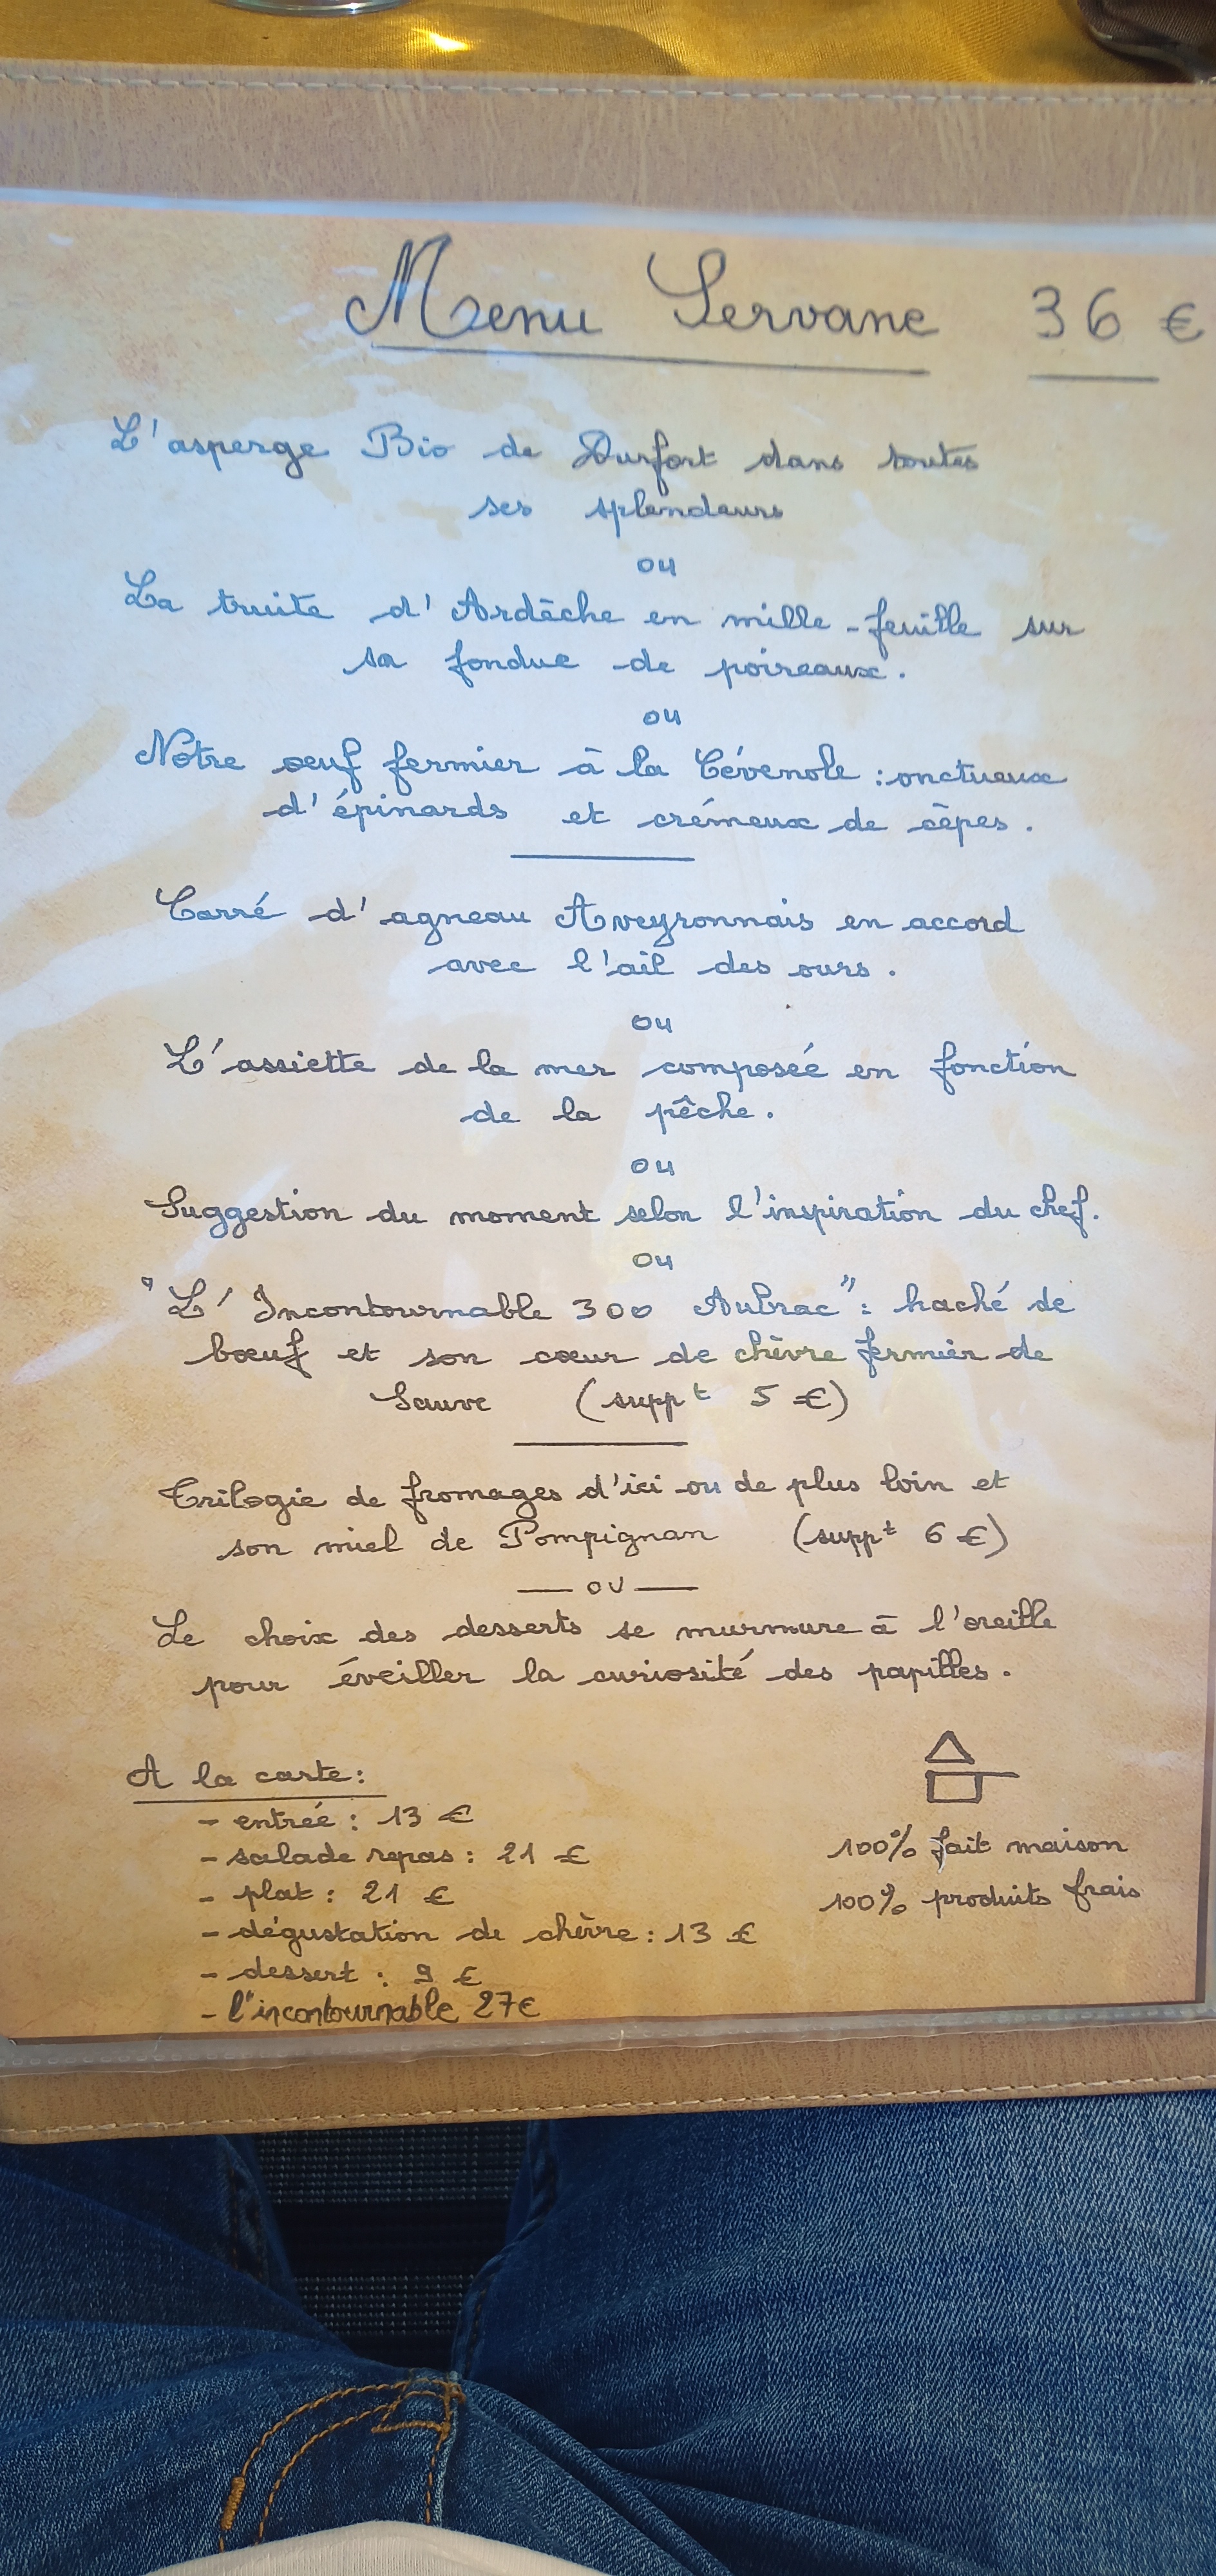 Menu Servane 36 €
L'asperge Bio de Durfort dans toutes
ses splendeurs
ou
La truite d'Ardèche en mille-feuille sur
sa fondue de poireaux.
ou
Notre œuf fermier à la Cévenole : onctueux
d'épinards et crémeux de cèpes.
Carré d'agneau Aveyronnais en accord
avec l'ail des ours.
ou
L'assiette de la mer composée en fonction
de la pêche.
ou
Suggestion du moment selon l'inspiration du chef.
ou
"L'Incontournable 300 Aubrac" : haché de
bœuf et son cœur de chèvre fermier de
Sauve (suppt 5 €)
Trilogie de fromages d'ici ou de plus loin et
son miel de Pompignan (suppt 6 €)
— OU —
Le choix des desserts se murmure à l'oreille
pour éveiller la curiosité des papilles.
A la carte :
- entrée : 13 €
- salade repas : 21 €
- plat : 21 €
- dégustation de chèvre : 13 €
- dessert : 9 €
- l'incontournable 27€
100% fait maison
100% produits frais